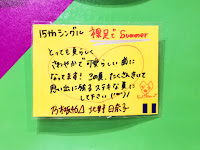 15thシングル 裸足でSummer
とっても夏らしく
さわやかで可愛らしい曲に
なってます! この夏、たくさんきいて
思い出に残るステキな夏に
して下さい(^^)/
乃木坂46 北野日奈子